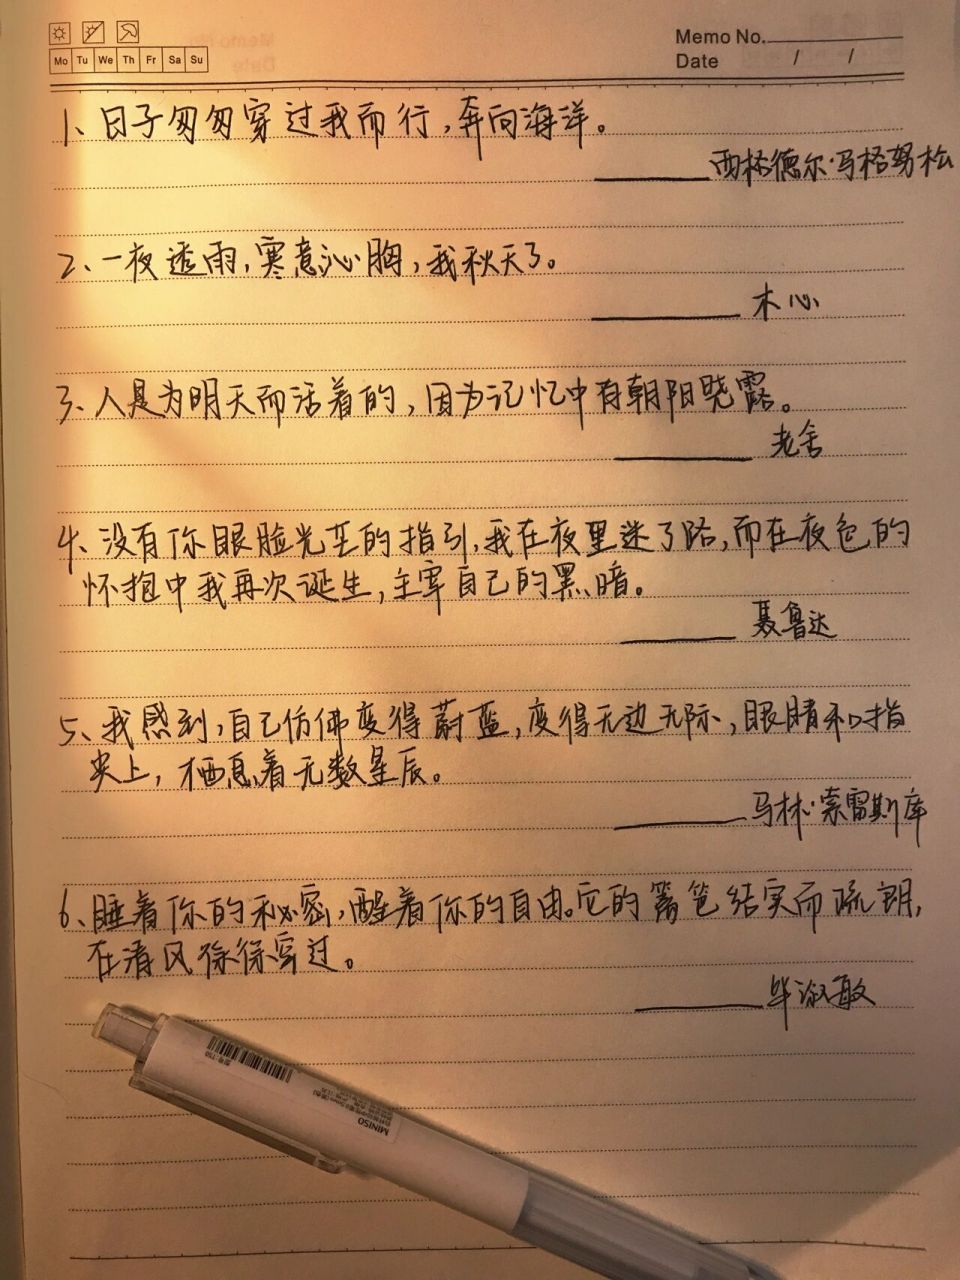 Memo No.
Mo Tu We Th Fr Sa Su
Date / /
1、日子匆匆穿过我而行,奔向海洋。
西格德尔·马格努松
2、一夜透雨,寒意沁胸,我秋天了。
木心
3、人是为明天而活着的,因为记忆中有朝阳晓露。
老舍
4、没有你眼睑光芒的指引,我在夜里迷了路,而在夜色的
怀抱中我再次诞生,主宰自己的黑暗。
聂鲁达
5、我感到,自己仿佛变得蔚蓝,变得无边无际,眼睛和指
尖上,栖息着无数星辰。
马林·索雷斯库
6、睡着你的秘密,醒着你的自由。它的篱笆结实而疏朗,
在清风徐徐穿过。
毕淑敏
MINISO